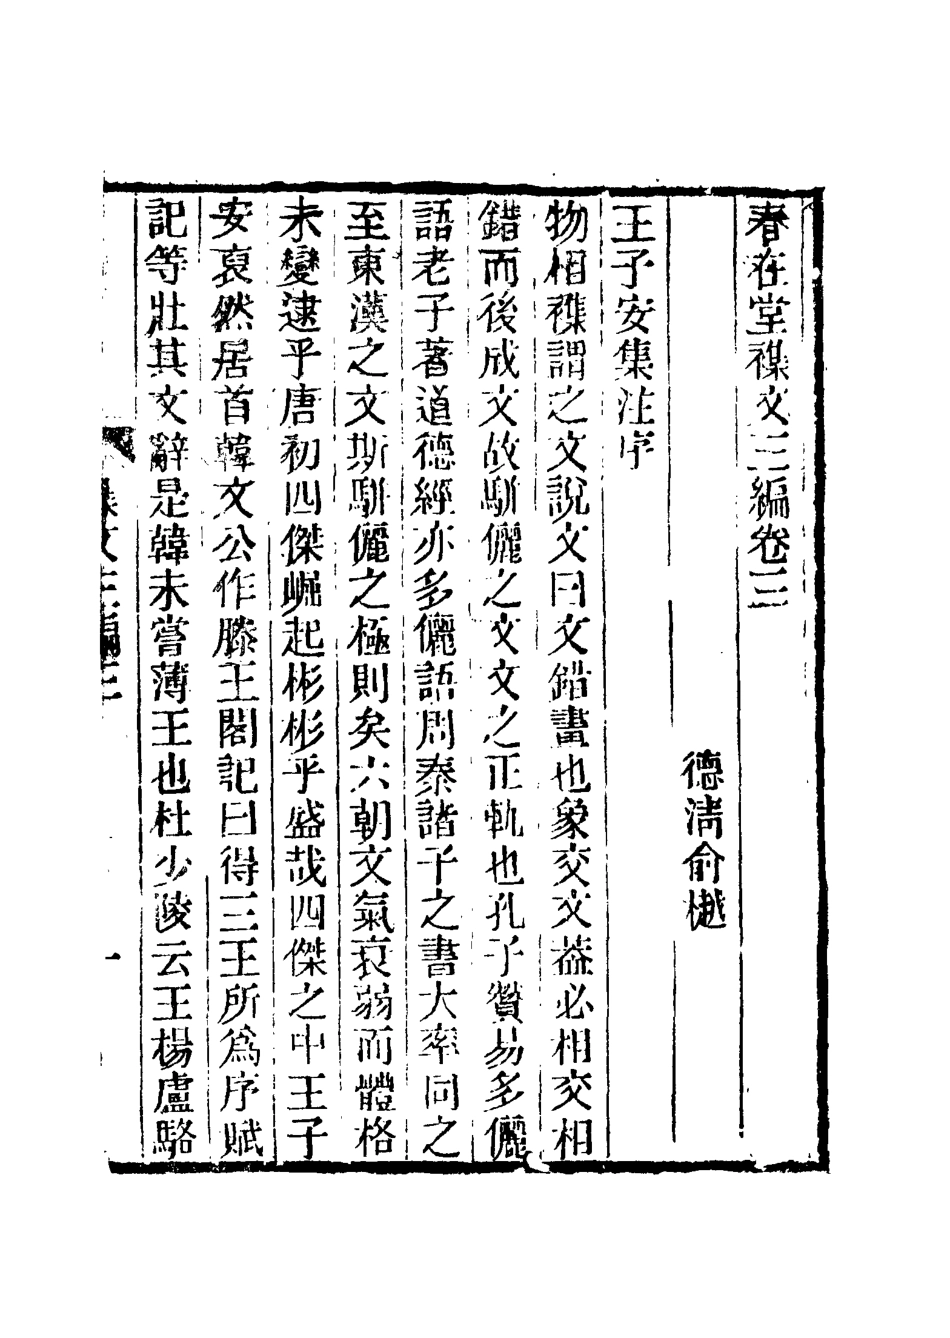 春在堂襍文三編卷三
德淸俞樾
王子安集注序
物相襍謂之文說文曰文錯畫也象交文葢必相交相
錯而後成文故駢儷之文文之正軌也孔子贊易多儷
語老子著道德經亦多儷語周秦諸子之書大率同之
至東漢之文斯駢儷之極則矣六朝文氣衰弱而體格
未變逮乎唐初四傑崛起彬彬乎盛哉四傑之中王子
安裒然居首韓文公作滕王閣記曰得三王所爲序賦
記等壯其文辭是韓未嘗薄王也杜少陵云王楊盧駱
襍文三編三
一